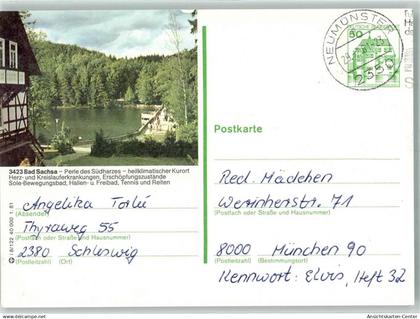 NEUMÜNSTER
2350
DEUTSCHE BUNDESPOST
50
3423 Bad Sachsa – Perle des Südharzes – heilklimatischer Kurort
Herz- und Kreislauferkrankungen, Erschöpfungszustände
Sole-Bewegungsbad, Hallen- u. Freibad, Tennis und Reiten
Angelika
(Absender)
Thyraweg 55
(Postfach oder Straße und Hausnummer)
2380 Schleswig
(Postleitzahl) (Ort)
Postkarte
Red. Mädchen
Werinherstr. 71
(Postfach oder Straße und Hausnummer)
8000 München 90
(Postleitzahl) (Bestimmungsort)
Kennwort: Elvis, Heft 32
Ansichtskarten-Center